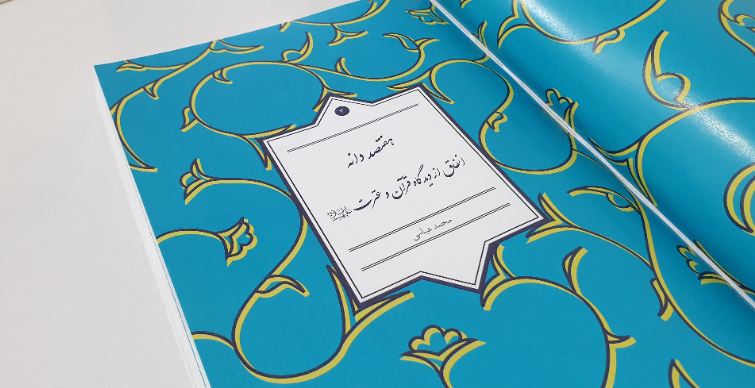 ۲
هفتصد دانه
انفاق از دیدگاه قرآن و عترت
محمد عباسی